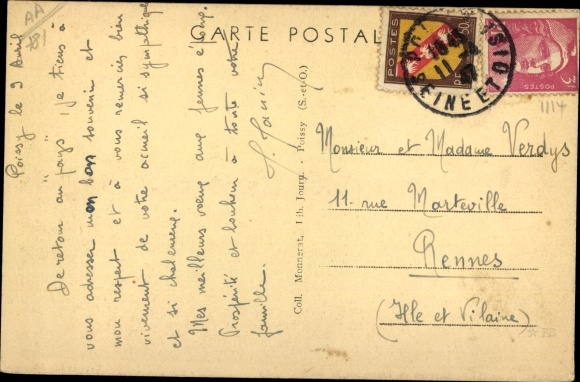 AA
CARTE POSTALE
Poissy le 9 Avril
De retour au "pays" je tiens à
vous adresser mon bon souvenir et
mon respect et à vous remercier bien
vivement de votre accueil si sympathique
et si chaleureux.
Mes meilleurs vœux aux jeunes époux.
Prospérité et bonheur à toute votre
famille.
Coll. Monnerat, Lib. Journ. - Poissy (S.-et-O.)
POSTES
POSTES
3F
POISSY
16
11 -4
47
SEINE ET OISE
1114
Monsieur et Madame Verdys
11 rue Marteville
Rennes
(Ille et Vilaine)